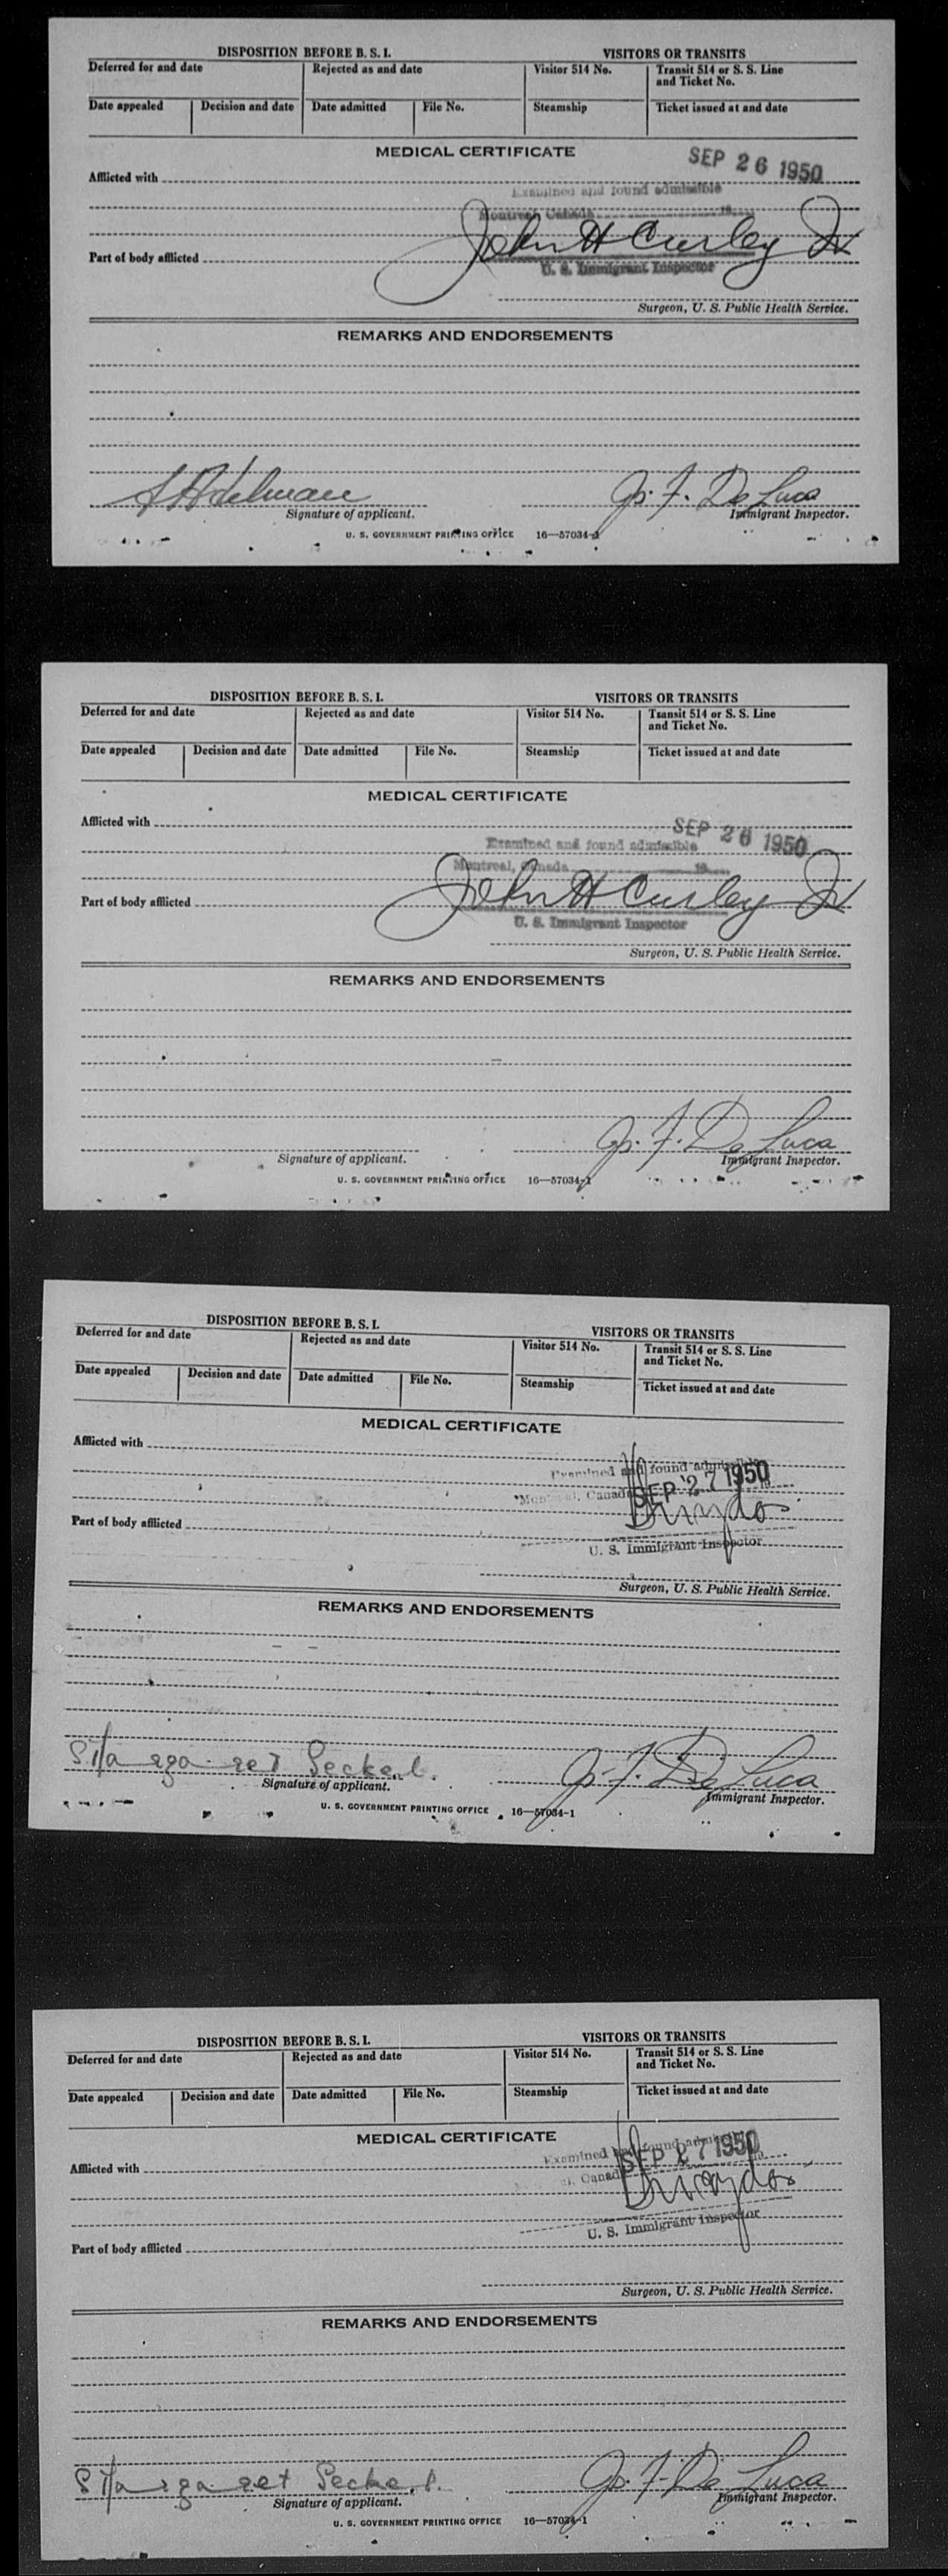 DISPOSITION BEFORE B. S. I. VISITORS OR TRANSITS
Deferred for and date Rejected as and date Visitor 514 No. Transit 514 or S. S. Line and Ticket No.
Date appealed Decision and date Date admitted File No. Steamship Ticket issued at and date
MEDICAL CERTIFICATE
SEP 26 1950
Afflicted with
Examined and found admissible
Montreal, Canada 19
John H Curley Jr
Part of body afflicted
U. S. Immigrant Inspector
Surgeon, U. S. Public Health Service.
REMARKS AND ENDORSEMENTS
S Adelman Jos. F. De Luca
Signature of applicant. Immigrant Inspector.
U. S. GOVERNMENT PRINTING OFFICE 16—57034-1
DISPOSITION BEFORE B. S. I. VISITORS OR TRANSITS
Deferred for and date Rejected as and date Visitor 514 No. Transit 514 or S. S. Line and Ticket No.
Date appealed Decision and date Date admitted File No. Steamship Ticket issued at and date
MEDICAL CERTIFICATE
Afflicted with
SEP 26 1950
Examined and found admissible
Montreal, Canada 19
John H Curley Jr
Part of body afflicted
U. S. Immigrant Inspector
Surgeon, U. S. Public Health Service.
REMARKS AND ENDORSEMENTS
Jos. F. De Luca
Signature of applicant. Immigrant Inspector.
U. S. GOVERNMENT PRINTING OFFICE 16—57034-1
DISPOSITION BEFORE B. S. I. VISITORS OR TRANSITS
Deferred for and date Rejected as and date Visitor 514 No. Transit 514 or S. S. Line and Ticket No.
Date appealed Decision and date Date admitted File No. Steamship Ticket issued at and date
MEDICAL CERTIFICATE
Afflicted with
Examined and found admissible
Montreal, Canada SEP 27 1950
Part of body afflicted
U. S. Immigrant Inspector
Surgeon, U. S. Public Health Service.
REMARKS AND ENDORSEMENTS
Margaret Jos. F. De Luca
Signature of applicant. Immigrant Inspector.
U. S. GOVERNMENT PRINTING OFFICE 16—57034-1
DISPOSITION BEFORE B. S. I. VISITORS OR TRANSITS
Deferred for and date Rejected as and date Visitor 514 No. Transit 514 or S. S. Line and Ticket No.
Date appealed Decision and date Date admitted File No. Steamship Ticket issued at and date
MEDICAL CERTIFICATE
Examined and found
Afflicted with
Canada SEP 27 1950
U. S. Immigrant Inspector
Part of body afflicted
Surgeon, U. S. Public Health Service.
REMARKS AND ENDORSEMENTS
Margaret Jos. F. De Luca
Signature of applicant. Immigrant Inspector.
U. S. GOVERNMENT PRINTING OFFICE 16—57034-1